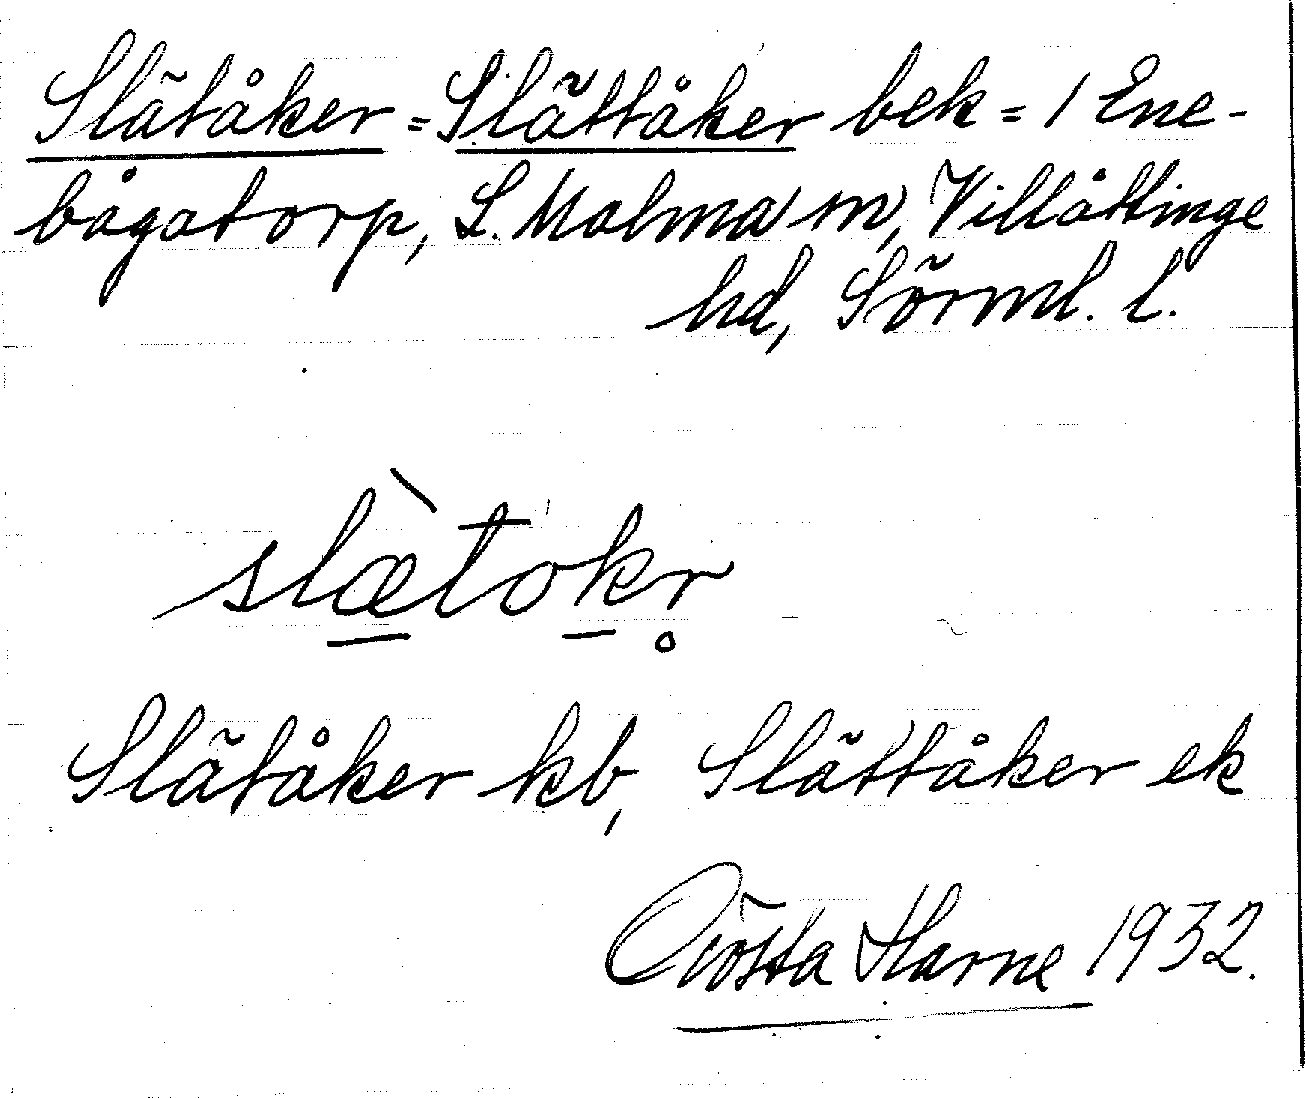 Slätåker = Slättåker bek = 1 Ene-
bågatorp, L. Malma sn, Villåttinge
hd, Sörml. l.
slæ̀tokr̥
Slätåker kb, Slättåker ek
Gösta Harne 1932.